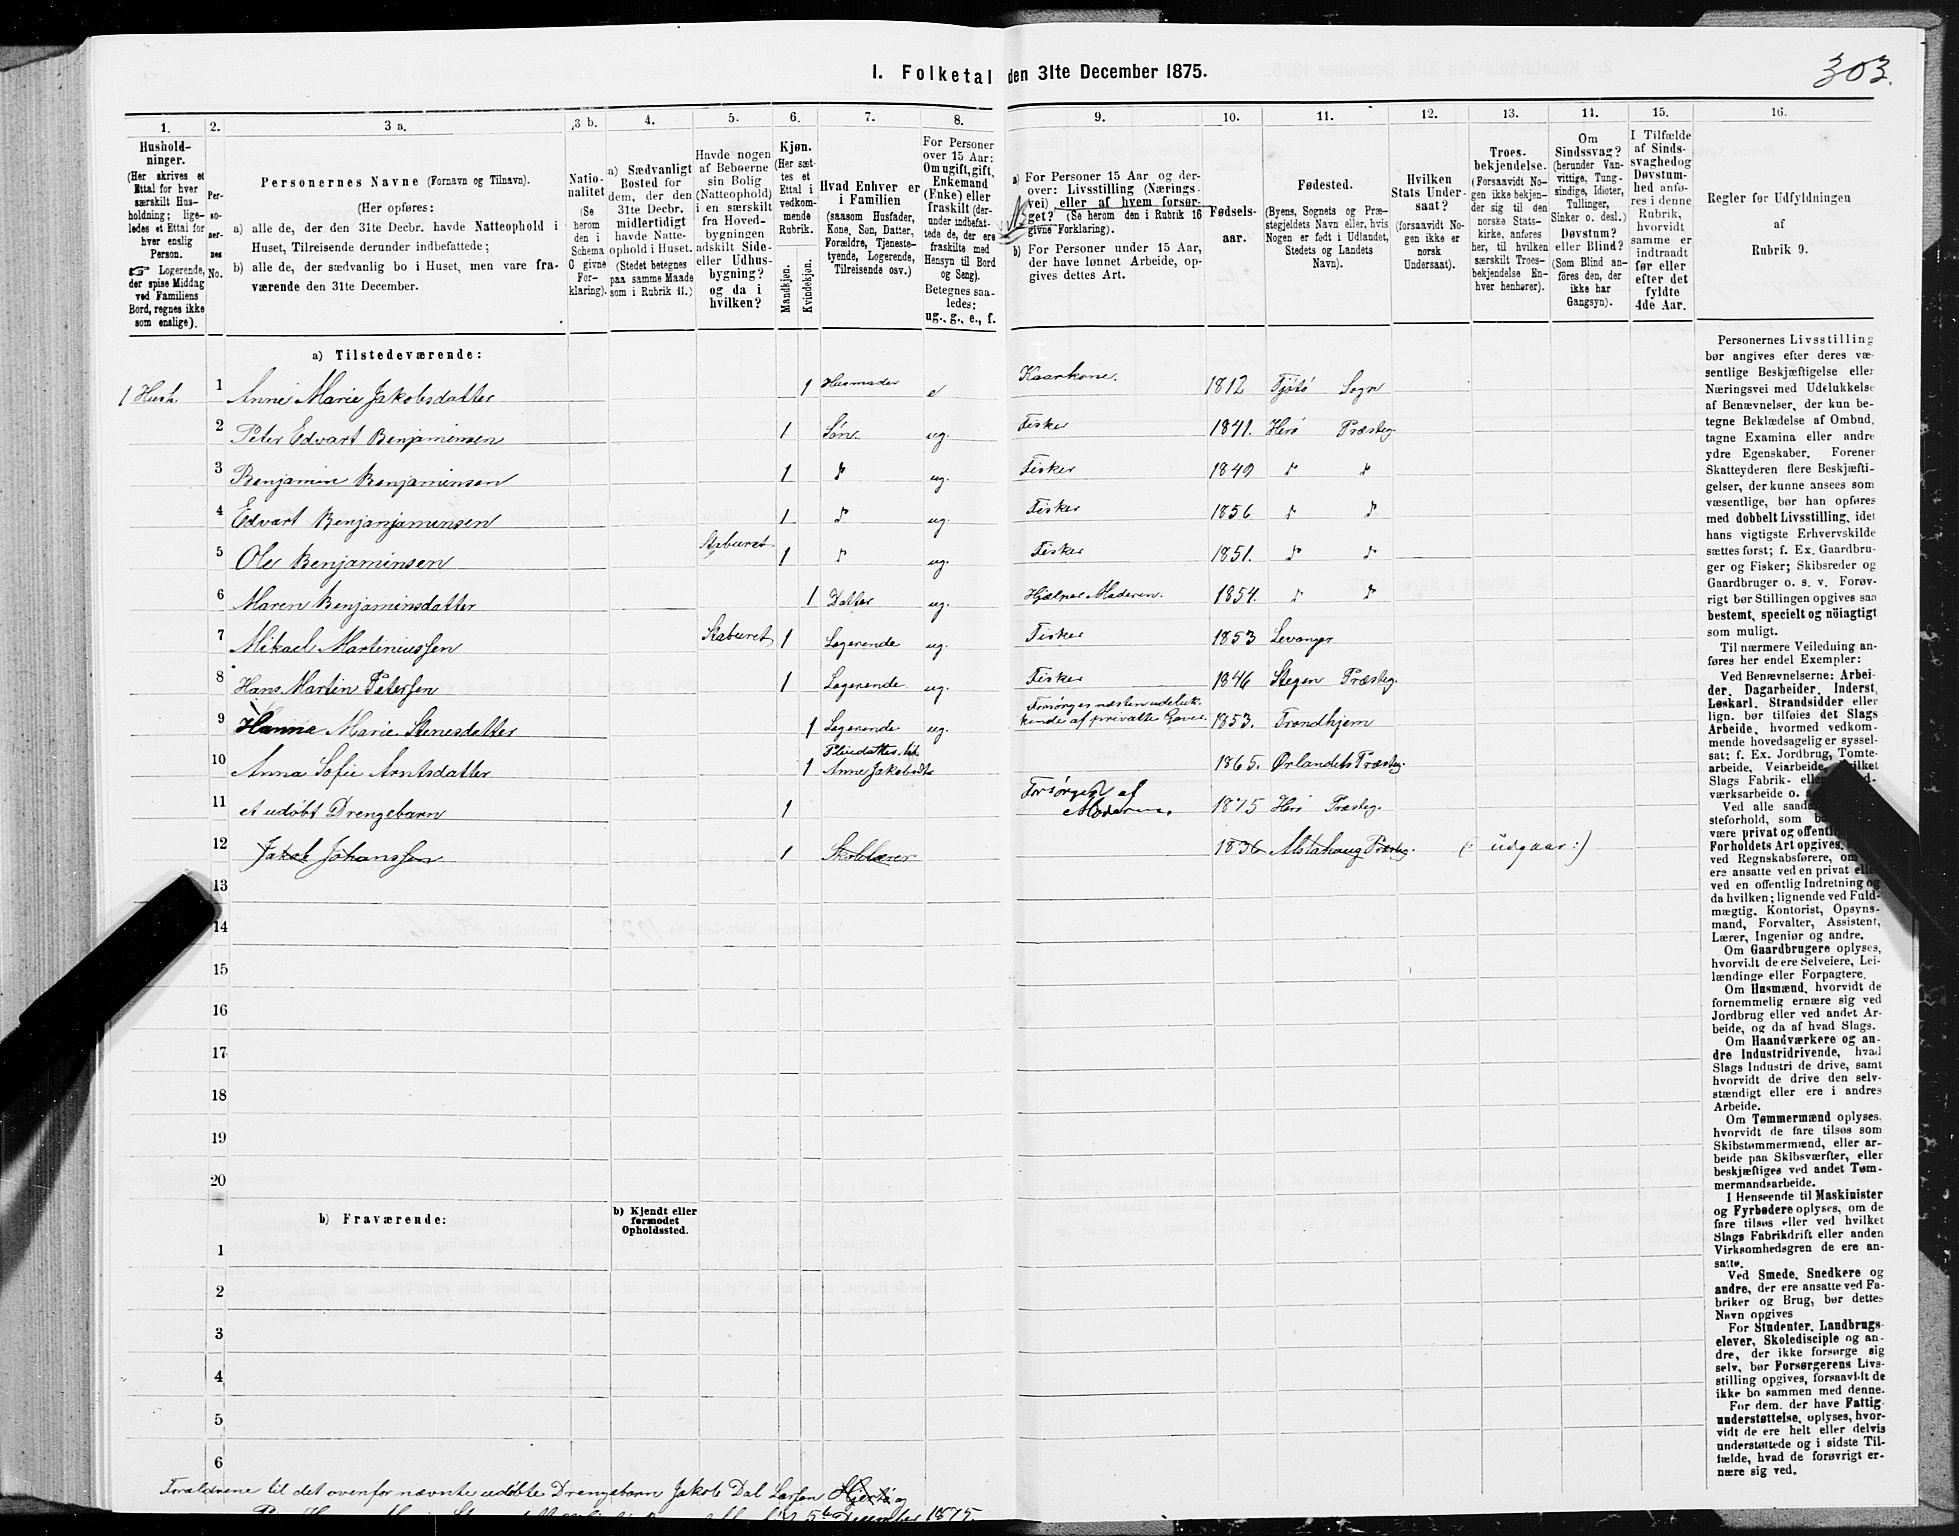 303.
I. Folketal den 31te December 1875.
1.
Hushold-
ninger.
(Her skrives et
Ettal for hver
særskilt Hus-
holdning; lige-
ledes et Ettal for
hver enslig
Person.
☞ Logerende,
der spise Middag
ved Familiens
Bord, regnes ikke
som enslige).
2.
Per-
so-
ner-
nes
No.
3 a.
Personernes Navne (Fornavn og Tilnavn).
(Her opføres:
a) alle de, der den 31te Decbr. havde Natteophold i
Huset, Tilreisende derunder indbefattede;
b) alle de, der sædvanlig bo i Huset, men vare fra-
værende den 31te December.
3 b.
Natio-
nalitet
(Se
herom
den i
Schema
C givne
For-
klaring).
4.
a) Sædvanligt
Bosted for
dem, der den
31te Decbr.
midlertidigt
havde Natte-
ophold i Huset.
(Stedet betegnes
paa samme Maade
som i Rubrik 11.)
5.
Havde nogen
af Beboerne
sin Bolig
(Natteophold)
i en særskilt
fra Hoved-
bygningen
adskilt Side-
eller Udhus-
bygning?
og da i
hvilken?
6.
Kjøn.
(Her sæt-
tes et
Ettal i
vedkom-
mende
Rubrik.
Mandkjøn.
Kvindekjøn.
7.
Hvad Enhver er
i Familien
(saasom Husfader,
Kone, Søn, Datter,
Forældre, Tjeneste-
tyende, Logerende,
Tilreisende osv.)
8.
For Personer
over 15 Aar:
Om ugift, gift,
Enkemand
(Enke) eller
fraskilt (der-
under indbefat-
tede de, der ere
fraskilte med
Hensyn til Bord
og Seng).
Betegnes saa-
ledes:
ug., g., e., f.
9.
a) For Personer 15 Aar og der-
over: Livsstilling (Nærings-
vei) eller af hvem forsør-
get? (Se herom den i Rubrik 16
givne Forklaring).
b) For Personer under 15 Aar,
der have lønnet Arbeide, op-
gives dettes Art.
10.
Fødsels-
aar.
11.
Fødested.
(Byens, Sognets og Præ-
stegjeldets Navn eller, hvis
Nogen er født i Udlandet,
Stedets og Landets
Navn).
12.
Hvilken
Stats Under-
saat?
(forsaavidt No-
gen ikke er
norsk
Undersaat).
13.
Troes-
bekjendelse.
(Forsaavidt No-
gen ikke bekjen-
der sig til den
norske Stats-
kirke, anføres
her, til hvilken
særskilt Troes-
bekjendelse En-
hver henhører).
14.
Om
Sindssvag?
(herunder Van-
vittige, Tung-
sindige, Idioter,
Tullinger,
Sinker o. desl.)
Døvstum?
eller Blind?
(Som Blind an-
føres den, der
ikke har
Gangsyn).
15.
I Tilfælde
af Sinds-
svaghed og
Døvstum-
hed anfø-
res i denne
Rubrik,
hvorvidt
samme er
indtraadt
før eller
efter det
fyldte
4de Aar.
16.
Regler for Udfyldningen
af
Rubrik 9.
a) Tilstedeværende:
1 Hush. 1 Anne Marie Jakobsdatter 1 Husmoder e Kaarkone. 1812 Tjøtø Sogn
2 Peter Edvart Benjaminsen 1 Søn. ug. Fisker 1841. Herø Præsteg.
3 Benjamin Benjaminsen 1 " ug. Fisker 1849 " "
4 Edvart Benjanjaminsen 1 " ug. Fisker 1856 " "
5 Ole Benjaminsen Staburet 1 " ug. Fisker 1851. " "
6 Maren Benjaminsdatter 1 Datter ug. Hjælper Moderen. 1854. " "
7 Mikael Martiniussen Staburet 1 Logerende ug. Fisker 1853 Levanger
8 Hans Martin Petersen 1 Logerende ug. Fisker 1846 Stegen Præsteg.
9 Hanna Marie Stenesdatter 1 Logerende ug. Forsørges næsten udeluk-
kende af private Gaver. 1853. Trondhjem
10 Anna Sofie Arntsdatter 1 Pleiedatter til
Anne Jakobsdtr 1865. Ørlandets Præsteg.
11 et udøbt Drengebarn 1 Forsørges af
Moderen. 1875 Herø Præsteg.
12 Jakob Johanssen 1 Skolelærer 1836 Alstahaug Præsteg. (: udgaar :)
13
14
15
16
17
18
19
20
b) Fraværende:
b) Kjendt eller
formodet
Opholdssted.
1
2
3
4
5
6
Personernes Livsstilling
bør angives efter deres væ-
sentlige Beskjæftigelse eller
Næringsvei med Udelukkelse
af Benævnelser, der kun be-
tegne Beklædelse af Ombud,
tagne Examina eller andre
ydre Egenskaber. Forener
Skatteyderen flere Beskjæfti-
gelser, der kunne ansees som
væsentlige, bør han opføres
med dobbelt Livsstilling, idet
hans vigtigste Erhvervskilde
sættes først; f. Ex. Gaardbru-
ger og Fisker; Skibsreder og
Gaardbruger o. s. v. Forøv-
rigt bør Stillingen opgives saa
bestemt, specielt og nöiagtigt
som muligt.
Til nærmere Veiledning an-
føres her endel Exempler:
Ved Benævnelserne: Arbei-
der, Dagarbeider, Inderst,
Løskarl, Strandsidder eller
lign. bør tilføies det Slags
Arbeide, hvormed vedkom-
mende hovedsagelig er syssel-
sat; f. Ex. Jordbrug, Tomte-
arbeide, Veiarbeide, hvilket
Slags Fabrik-
værksarbeide o.
Ved alle
steforhold, som
være privat og offentlig
Forholdets Art opgives.
ved Regnskabsførere, om
ere ansatte ved en privat eller
ved en offentlig Indretning og
da hvilken; lignende ved Fuld-
mægtig, Kontorist, Opsyns-
mand, Forvalter, Assistent,
Lærer, Ingeniør og andre.
Om Gaardbrugere oplyses,
hvorvidt de ere Selveiere, Lei-
lændinge eller Forpagtere.
Om Husmænd, hvorvidt de
fornemmelig ernære sig ved
Jordbrug eller ved andet Ar-
beide, og da af hvad Slags.
Om Haandværkere og an-
dre Industridrivende, hvad
Slags Industri de drive, samt
hvorvidt de drive den selv-
stændigt eller ere i andres
Arbeide.
Om Tømmermænd oplyses,
hvorvidt de fare tilsøs som
Skibstømmermænd, eller ar-
beide paa Skibsværfter, eller
beskjæftiges ved andet Tøm-
mermandsarbeide.
I Henseende til Maskinister
og Fyrbødere oplyses, om de
fare tilsøs eller ved hvilket
Slags Fabrikdrift eller anden
Virksomhedsgren de ere an-
satte.
Ved Smede, Snedkere og
andre, der ere ansatte ved Fa-
briker og Brug, bør dettes
Navn opgives
For Studenter, Landbrugs-
elever, Skoledisciple og an-
dre, der ikke forsørge sig
selv, bør Forsørgerens Livs-
stilling opgives, forsaavidt de
ikke bo sammen med denne.
For dem, der have Fattig-
understøttelse, oplyses, hvor-
vidt de ere helt eller delvis
understøttede og i sidste Til-
fælde, hvad de forøvrigt er-
nære sig ved.
Forældrene til det ovenfor nævnte udøbte Drengebarn Jakob Dal Larsen og
5te December 1875.